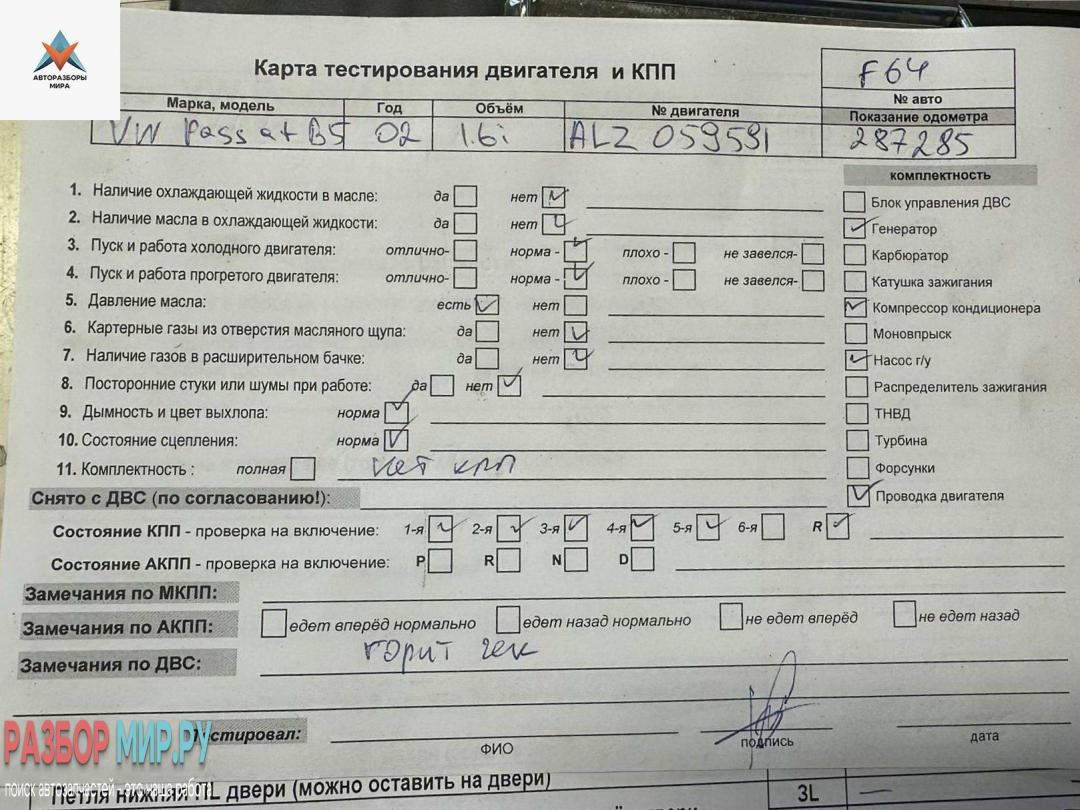 АВТОРАЗБОРЫ
МИРА
Карта тестирования двигателя и КПП
F64
№ авто
Марка, модель Год Объём № двигателя Показание одометра
VW Passat B5 02 1.6i ALZ 059591 287285
комплектность
1. Наличие охлаждающей жидкости в масле: да нет
Блок управления ДВС
2. Наличие масла в охлаждающей жидкости: да нет
Генератор
3. Пуск и работа холодного двигателя: отлично- норма - плохо - не завелся-
Карбюратор
4. Пуск и работа прогретого двигателя: отлично- норма - плохо - не завелся-
Катушка зажигания
5. Давление масла: есть нет
Компрессор кондиционера
6. Картерные газы из отверстия масляного щупа: да нет
Моновпрыск
7. Наличие газов в расширительном бачке: да нет
Насос г/у
8. Посторонние стуки или шумы при работе: да нет
Распределитель зажигания
9. Дымность и цвет выхлопа: норма
ТНВД
10. Состояние сцепления: норма
Турбина
11. Комплектность : полная нет кпп
Форсунки
Снято с ДВС (по согласованию!):
Проводка двигателя
Состояние КПП - проверка на включение: 1-я 2-я 3-я 4-я 5-я 6-я R
Состояние АКПП - проверка на включение: P R N D
Замечания по МКПП:
Замечания по АКПП: едет вперёд нормально едет назад нормально не едет вперёд не едет назад
Замечания по ДВС: горит чек
Тестировал:
ФИО подпись дата
РАЗБОР МИР.РУ
поиск автозапчастей - это наша работа
Петля нижняя ПL двери (можно оставить на двери) 3L